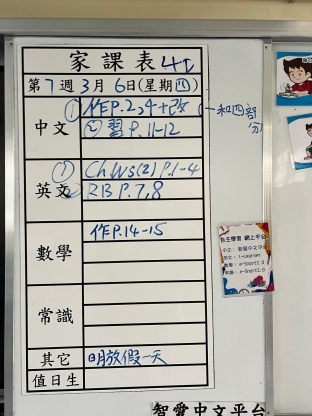 家課表 4D
第7週3月6日(星期四)
中文
① 作P.2,4+改 (一和四部分)
② 習P.11-12
英文
① Ch.Ws(2) P.1-4
② RB P.7,8
數學
作P.14-15
常識
其它
明放假一天
值日生
自主學習 網上平台
中文: 智愛中文平台
英文: i-Learner
數學: e-Smart2.0
常識: e-Smart2.0
智愛中文平台